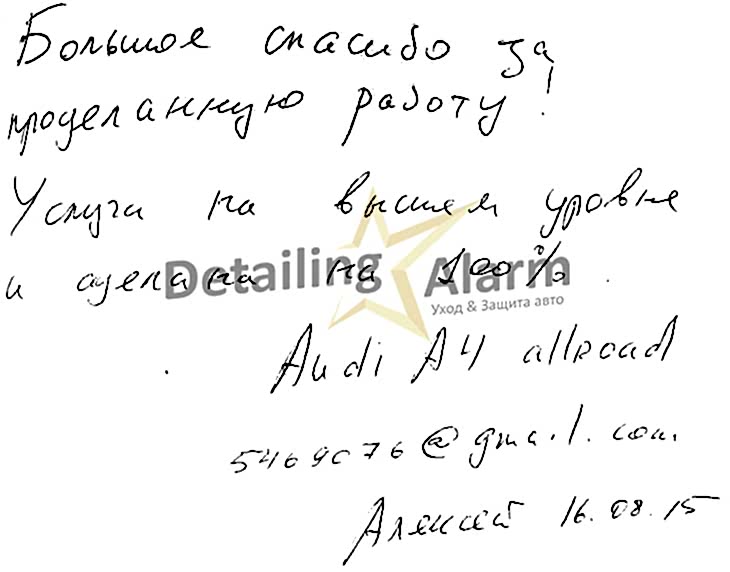 Большое спасибо за
проделанную работу!
Услуги на высшем уровне
и сделаны на 100%.
Detailing Alarm
Уход & Защита авто
Audi A4 allroad
5469076@gmail.com
Алексей 16.08.15